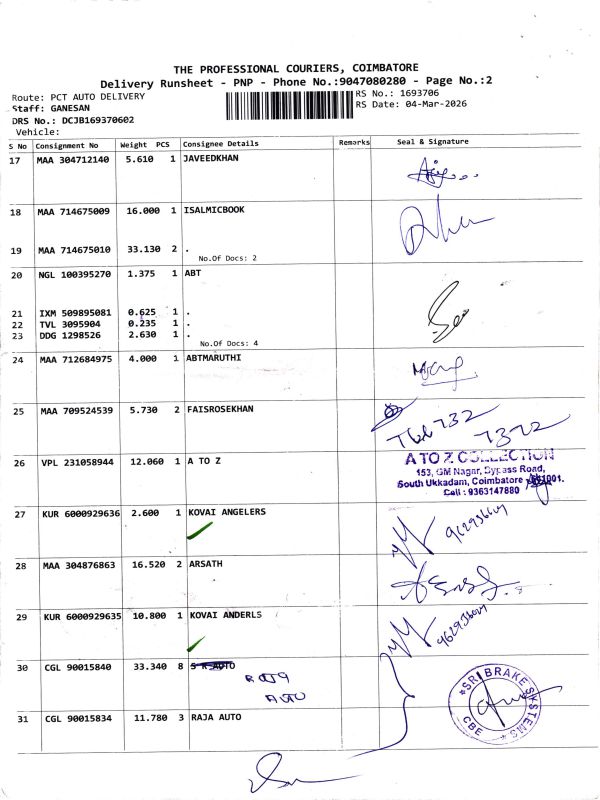 THE PROFESSIONAL COURIERS, COIMBATORE
Delivery Runsheet - PNP - Phone No.:9047080280 - Page No.:2
Route: PCT AUTO DELIVERY
Staff: GANESAN
DRS No.: DCJB169370602
Vehicle:
RS No.: 1693706
RS Date: 04-Mar-2026
S No Consignment No Weight PCS Consignee Details Remarks Seal & Signature
17 MAA 304712140 5.610 1 JAVEEDKHAN
18 MAA 714675009 16.000 1 ISALMICBOOK
19 MAA 714675010 33.130 2 .
No.Of Docs: 2
20 NGL 100395270 1.375 1 ABT
21 IXM 509895081 0.625 1 .
22 TVL 3095904 0.235 1 .
23 DDG 1298526 2.630 1 .
No.Of Docs: 4
24 MAA 712684975 4.000 1 ABTMARUTHI
25 MAA 709524539 5.730 2 FAISROSEKHAN
7372
26 VPL 231058944 12.060 1 A TO Z
A TO Z COLLECTION
153, GM Nagar, Bypass Road,
South Ukkadam, Coimbatore
Cell : 9363147880
27 KUR 6000929636 2.600 1 KOVAI ANGELERS
28 MAA 304876863 16.520 2 ARSATH
29 KUR 6000929635 10.800 1 KOVAI ANDERLS
30 CGL 90015840 33.340 8 S K AUTO
RAJA
AUTO
31 CGL 90015834 11.780 3 RAJA AUTO
SRI BRAKE SYSTEMS
CBE